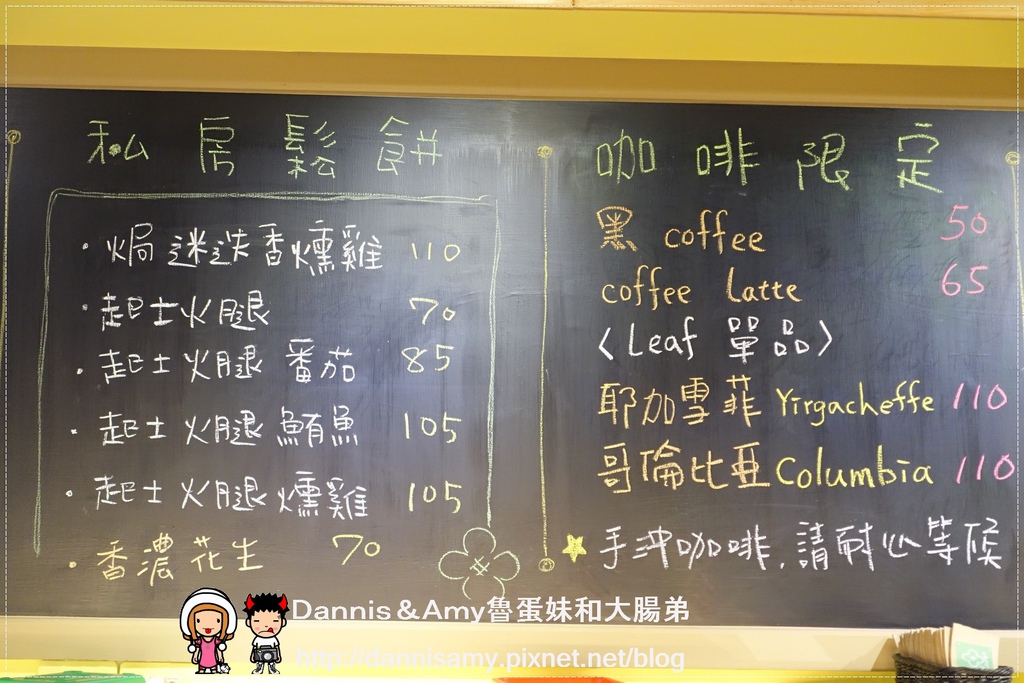 私房鬆餅
·焗迷迭香燻雞 110
·起士火腿 70
·起士火腿番茄 85
·起士火腿鮪魚 105
·起士火腿燻雞 105
·香濃花生 70
咖啡限定
黑 coffee 50
coffee Latte 65
〈Leaf 單品〉
耶加雪菲 Yirgacheffe 110
哥倫比亞 Columbia 110
★手沖咖啡,請耐心等候
Dannis&Amy魯蛋妹和大腸弟
http://dannisamy.pixnet.net/blog